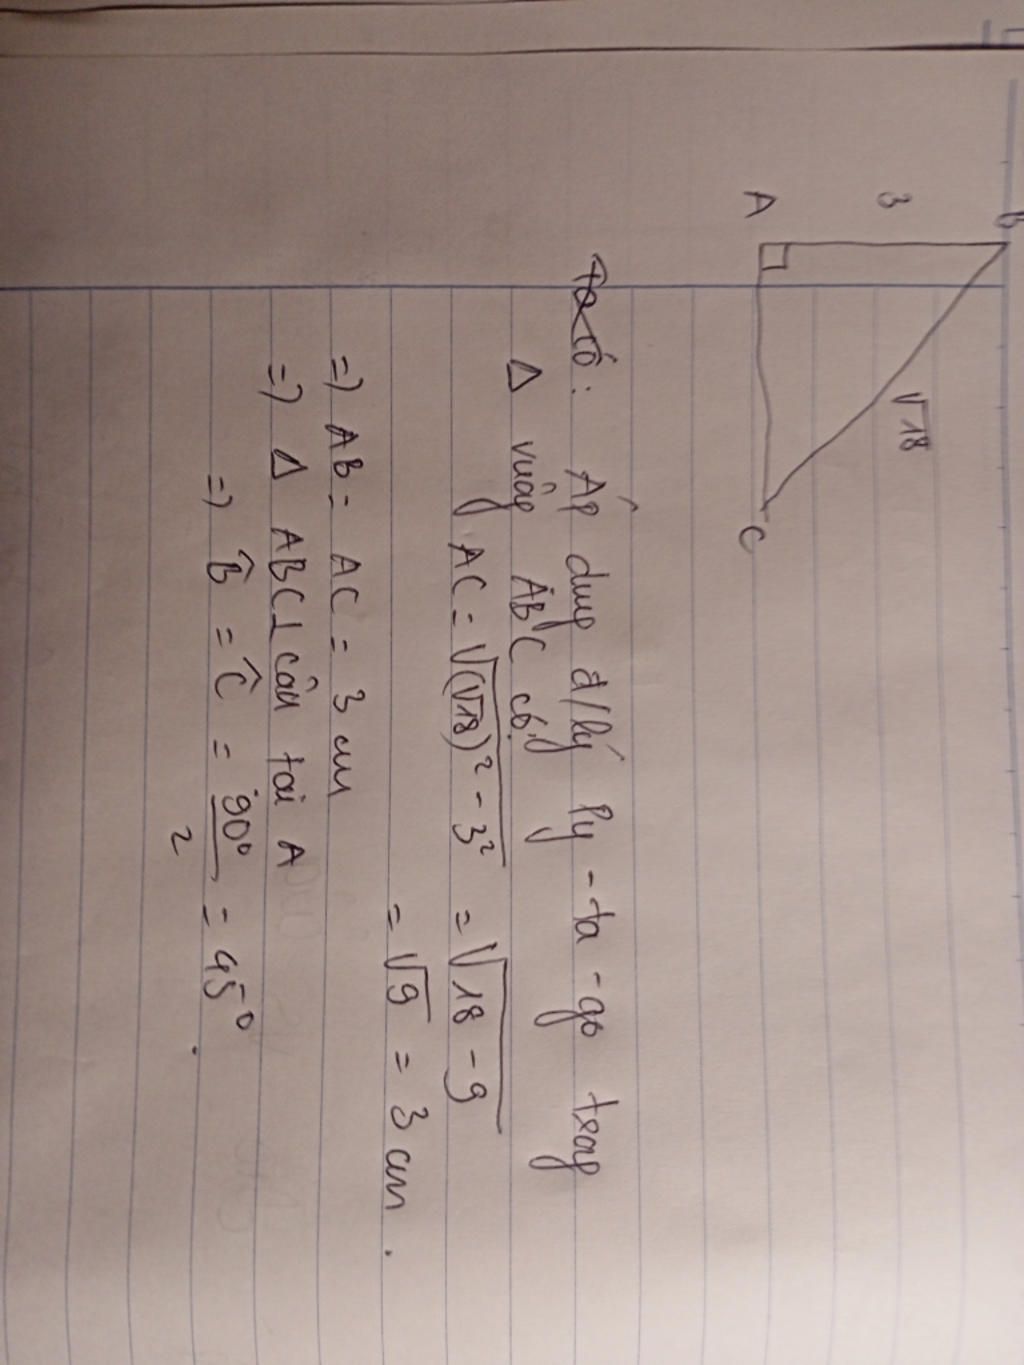 B
3
√18
A
C
Ta có: Áp dụng đ/lý Py-ta-go trong
Δ vuông ABC có:
AC = √(√18)² - 3² = √18 - 9
= √9 = 3 cm.
=> AB = AC = 3 cm
=> Δ ABC ⊥ cân tại A
=> B̂ = Ĉ = 90°/2 = 45°.